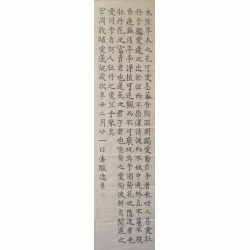 水陸草木之花可愛者甚蕃晉陶淵明獨愛菊自李唐來世人甚愛牡
丹予獨愛蓮之出淤泥而不染濯清漣而不妖中通外直不蔓不枝
香遠益清亭亭淨植可遠觀而不可褻玩焉予謂菊花之隱逸者也
牡丹花之富貴者也蓮花之君子者也噫菊之愛陶後鮮有聞蓮之
愛同予者何人牡丹之愛宜乎眾矣
宋周敦頤愛蓮說歲次辛丑二月廿一日書